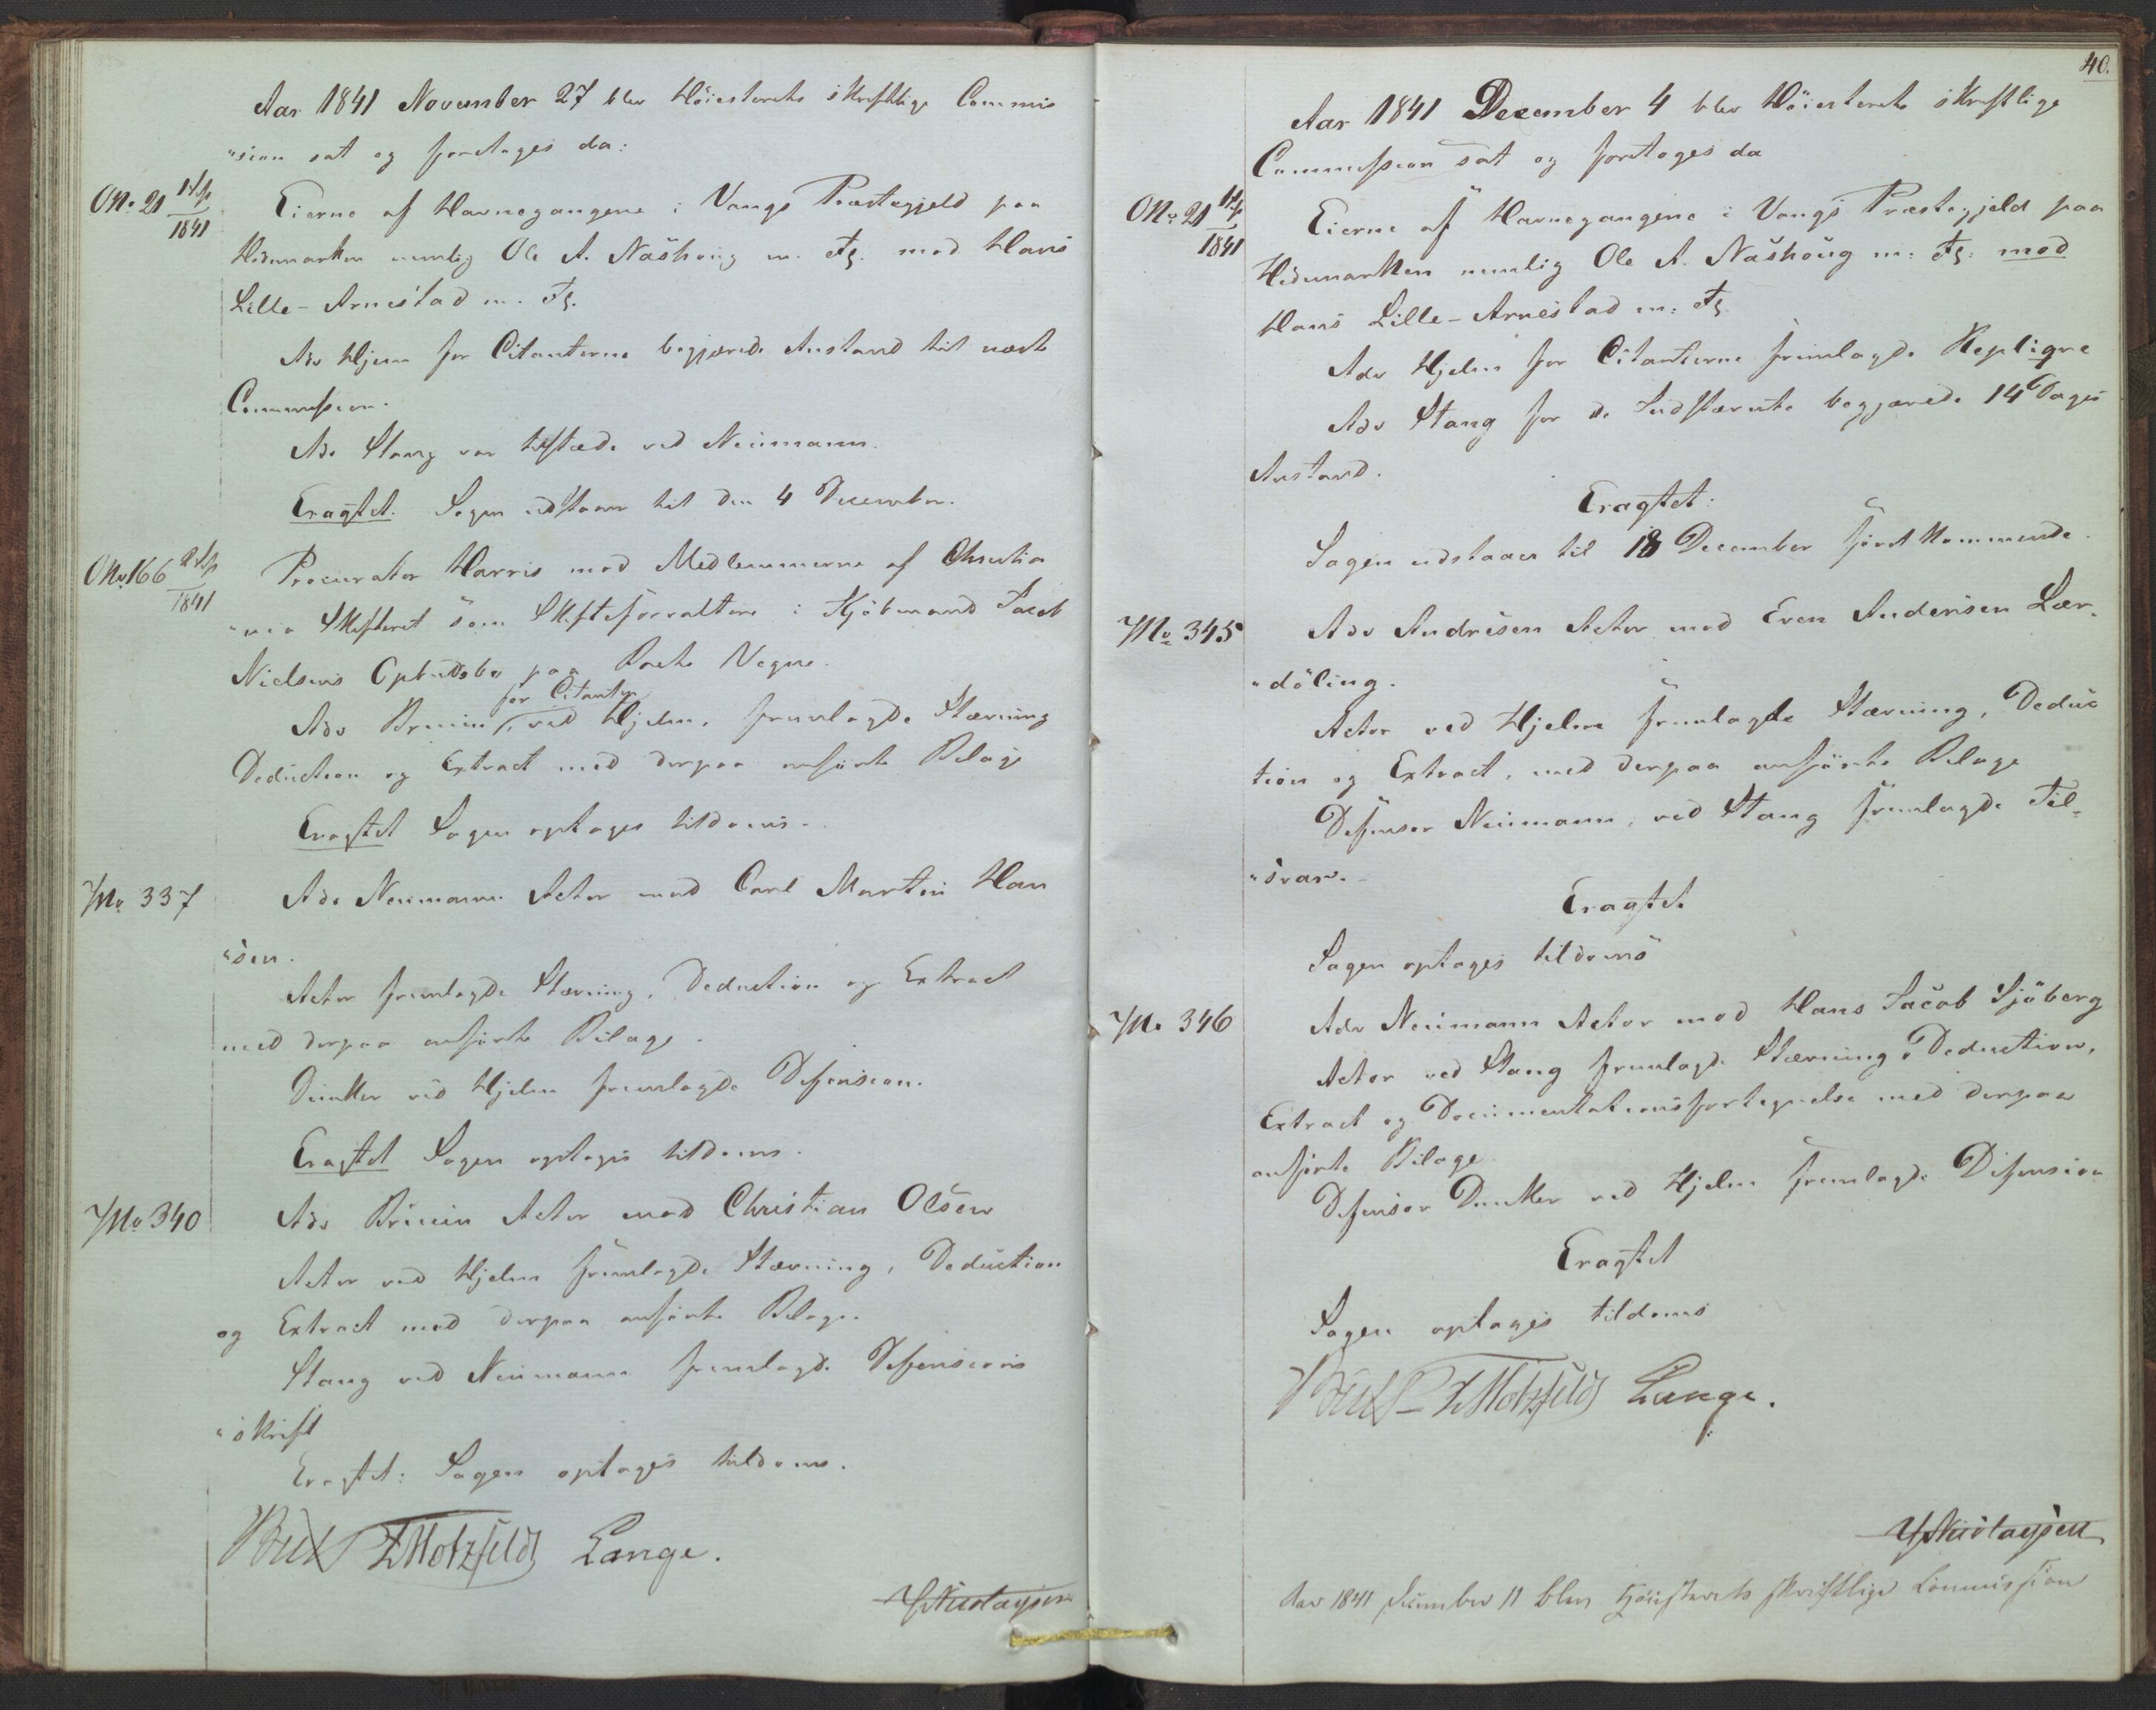 Aar 1841 November 27 blev Höiesterets skriftlige Commis
"sion sat og foretoges da:
ONo 21 1ste/1841
Eierne af Havnegangene i Vangs Præstegjeld paa
Hedemarken nemlig Ole A. Nashoug m. Fl. mod Hans
Lille-Arnestad m. Fl.
Adv Hjelm for Citanterne begjærede Anstand til næste
Commission.
Adv Stang var tilstæde ved Neumann.
Eragtet. Sagen udstaaer til den 4 December.
ONo 166 2d/1841
Procurator Harris mod Medlemmerne af Christia
"nia Skifteret som Skifteforvaltere i Kjöbmand Jacob
Nielsens Opbudsbo paa Boets Vegne.
for Citanten
Adv Bruun, ved Hjelm, fremlagde Stævning
Deduction og Extract med derpaa anförte Bilage
Eragtet Sagen optages tildoms.
No 337
Adv Neumann Actor mod Carl Martin Han
"sen.
Actor fremlagde Stævning, Deduction og Extract
med derpaa anförte Bilage.
Dunker ved Hjelm fremlagde Defension.
Eragtet Sagen optages tildoms.
No 340
Adv Bruun Actor mod Christian Olsen
Actor ved Hjelm fremlagde Stævning, Deduction
og Extract med derpaa anförte Bilage.
Stang ved Neumann fremlagde Defensions
"skrift
Eragtet: Sagen optages tildoms.
Motzfeldt Lange.
Nicolaysen
40.
Aar 1841 December 4 blev Höiesterets skriftlige
Commission sat og foretoges da
ONo 21 1ste/1841
Eierne af Havnegangene i Vangs Præstegjeld paa
Hedemarken nemlig Ole A. Nashoug m: Fl: mod
Hans Lille-Arnestad m: Fl.
Adv Hjelm for Citanterne fremlagde Repliqve
Adv Stang for de Indstævnte begjærede 14 Dages
Anstand.
Eragtet:
Sagen udstaaer til 18 December førstkommende.
No 345
Adv Andresen Actor mod Even Andersen Lær-
"döling.
Actor ved Hjelm fremlagde Stævning, Deduc
tion og Extract, med derpaa anförte Bilage
Defensor Neumann, ved Stang fremlagde Til-
"svar.
Eragtet
Sagen optages tildoms
No 346
Adv Neumann Actor mod Hans Jacob Sjöberg
Actor ved Stang fremlagde Stævning, Deduction,
Extract og Documentationsfortegnelse med derpaa
anförte Bilage.
Defensor Dunker ved Hjelm fremlagde Defension
Eragtet
Sagen optages tildoms
Motzfeldt Lange.
Nicolaysen
Aar 1841 December 11 blev Höiesterets skriftlige Commission